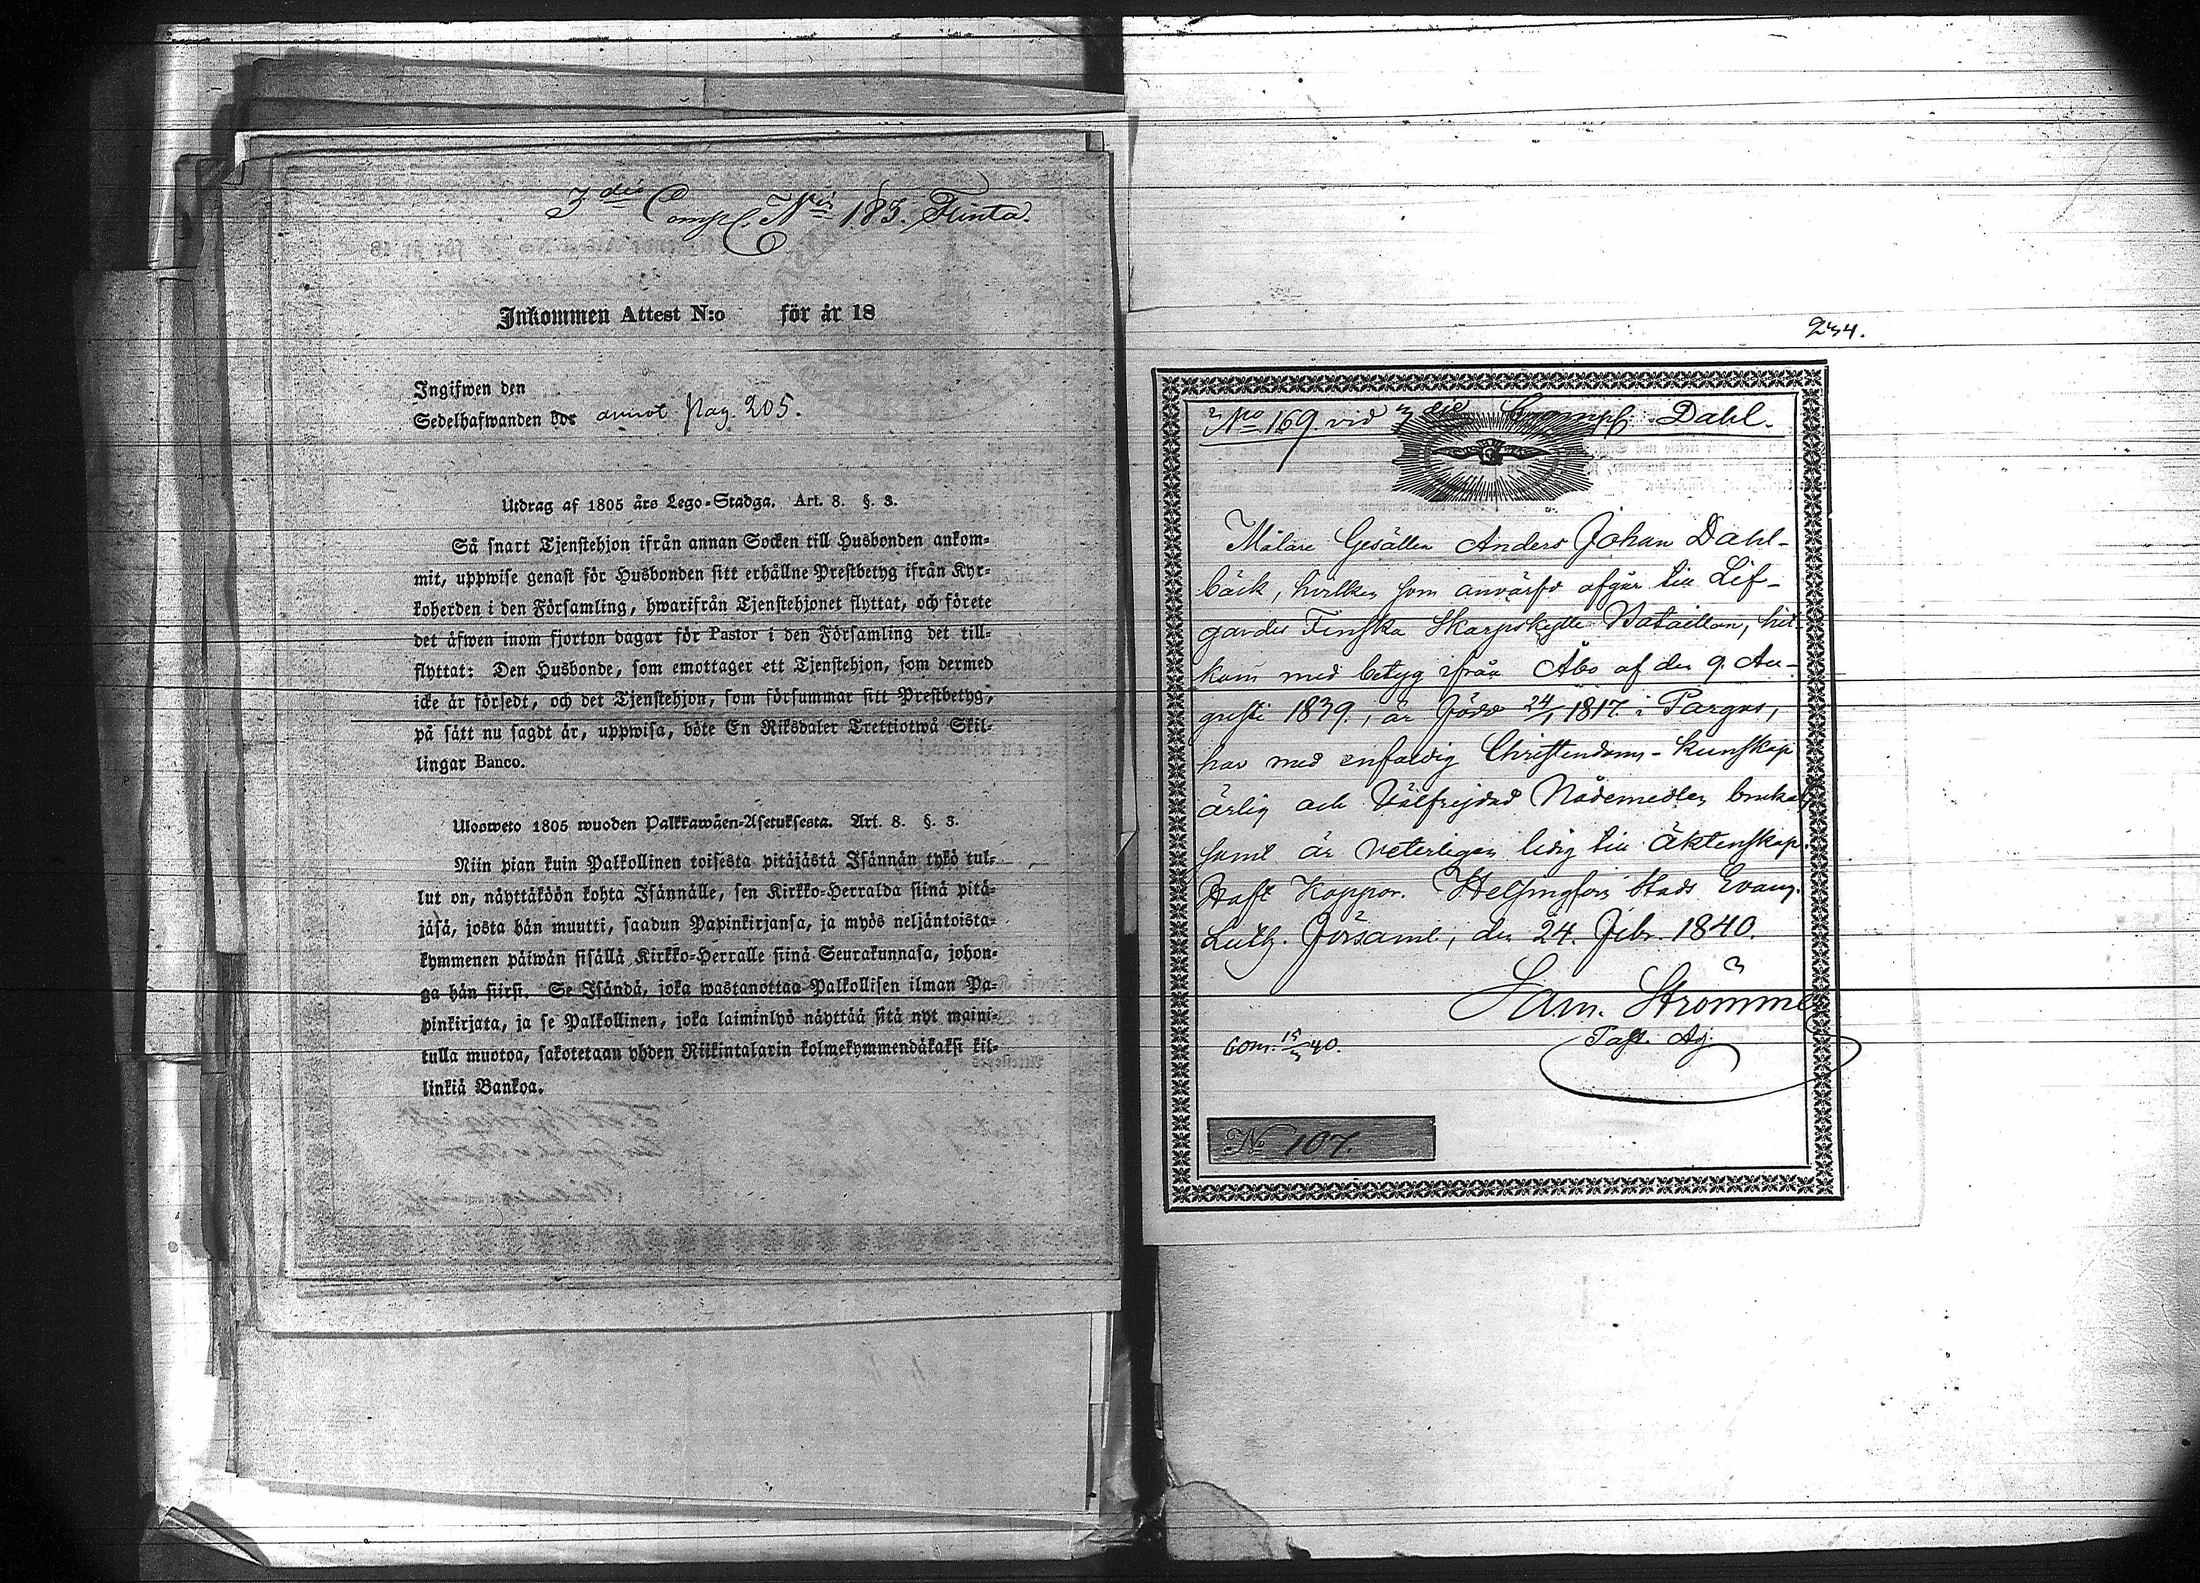 3die Comp. N:ris 183. Flinta.
Inkommen Attest N:o för år 18
Ingifwen den
Sedelhafwanden bor annot. Pag. 205.
Utdrag af 1805 års Lego-Stadga. Art. 8. §. 3.
Så snart Tjenstehjon ifrån annan Socken till Husbonden ankom-
mit, uppwise genast för Husbonden sitt erhållne Prestbetyg ifrån Kyr-
koherden i den Församling, hwarifrån Tjenstehjonet flyttat, och förete
det äfwen inom fjorton dagar för Pastor i den Församling det till-
flyttat: Den Husbonde, som emottager ett Tjenstehjon, som dermed
icke är försedt, och det Tjenstehjon, som försummar sitt Prestbetyg,
på sätt nu sagdt är, uppwisa, böte En Riksdaler Trettiotwå Skil-
lingar Banco.
Ulosweto 1805 wuoden Palkkawäen-Asetuksesta. Art. 8. §. 3.
Niin pian kuin Palkollinen toisesta pitäjästä Isännän tykö tul-
lut on, näyttäköön kohta Isännälle, sen Kirkko-Herralda siinä pitä-
jäsä, josta hän muutti, saadun Papinkirjansa, ja myös neljäntoista-
kymmenen päiwän sisällä Kirkko-Herralle siinä Seurakunnasa, johon-
ga hän siirsi. Se Isändä, joka wastanottaa Palkollisen ilman Pa-
pinkirjata, ja se Palkollinen, joka laiminlyö näyttää sitä nyt maini-
tulla muotoa, sakotetaan yhden Riikintalarin kolmekymmendäkaksi kil-
linkiä Bankoa.
234.
No 169 vid 3die Comp. Dahl.
Målare Gesällen Anders Johan Dahl-
bäck, hvilken som anvärfd afgår till Lif-
gardes Finska Skarpskytte Bataillon, hit-
kom med betyg ifrån Åbo af den 9. Au-
gusti 1839., är född 24/1 1817 i Pargas,
har med enfaldig Christendoms-kunskap
ärlig och Välfrejdad Nådemedlen brukat
samt är veterligen ledig till äktenskap.
Haft Koppor. Helsingfors Stads Evang.
Luth. Församl., den 24. Febr. 1840.
Sam. Strömmer
Past. Adj.
Com. 15/3 40.
No 107.